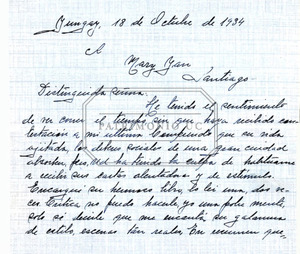 Yungay, 18 de Octubre de 1934
A
Mary Yan
Santiago-
Distinguida señora:
He tenido el sentimiento
de ver correr el tiempo sin que haya recibido con-
testación a mi última. Comprendo que su vida
agitada, los deberes sociales de una gran ciudad
absorben, pero Ud. ha tenido la culpa de habituarme
a recibir sus cartas alentadoras y de estímulo.
Encargué su hermoso libro. Lo leí una, dos ve-
ces. Crítica no puedo hacerle yo una pobre mente,
solo sí decirle que me encantó su galanura
de estilo, escenas tan reales. En resumen que-
PATRIMONIO CU